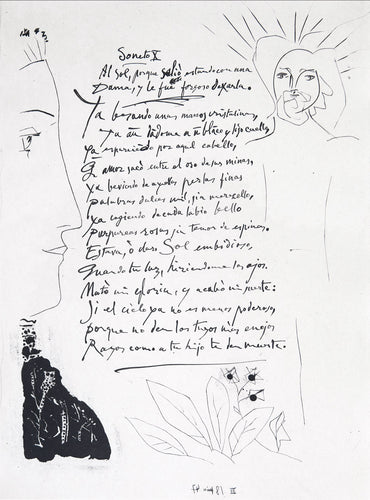 Soneto X
Al Sol, porque salió estando con una
Dama, y le fue forzoso dexarla.
Ya besando unas manos cristalinas,
Ya a un blanco y liso cuello,
ya esparciendo por aquel cabello,
Q amor sacó entre el oro de sus minas,
ya bebiendo aquellas perlas finas
palabras dulces mil, sin merecello,
ya cogiendo de cada labio bello
purpureas rosas sin temor de espinas.
Estava, ò claro Sol embidioso,
Quando tu luz, hiriendome los ojos,
Mató mi gloria, y acabó mi suerte:
Si el cielo ya no es menos poderoso,
porque no den los tuyos más enojos
Rayos como a tu hijo te den muerte.